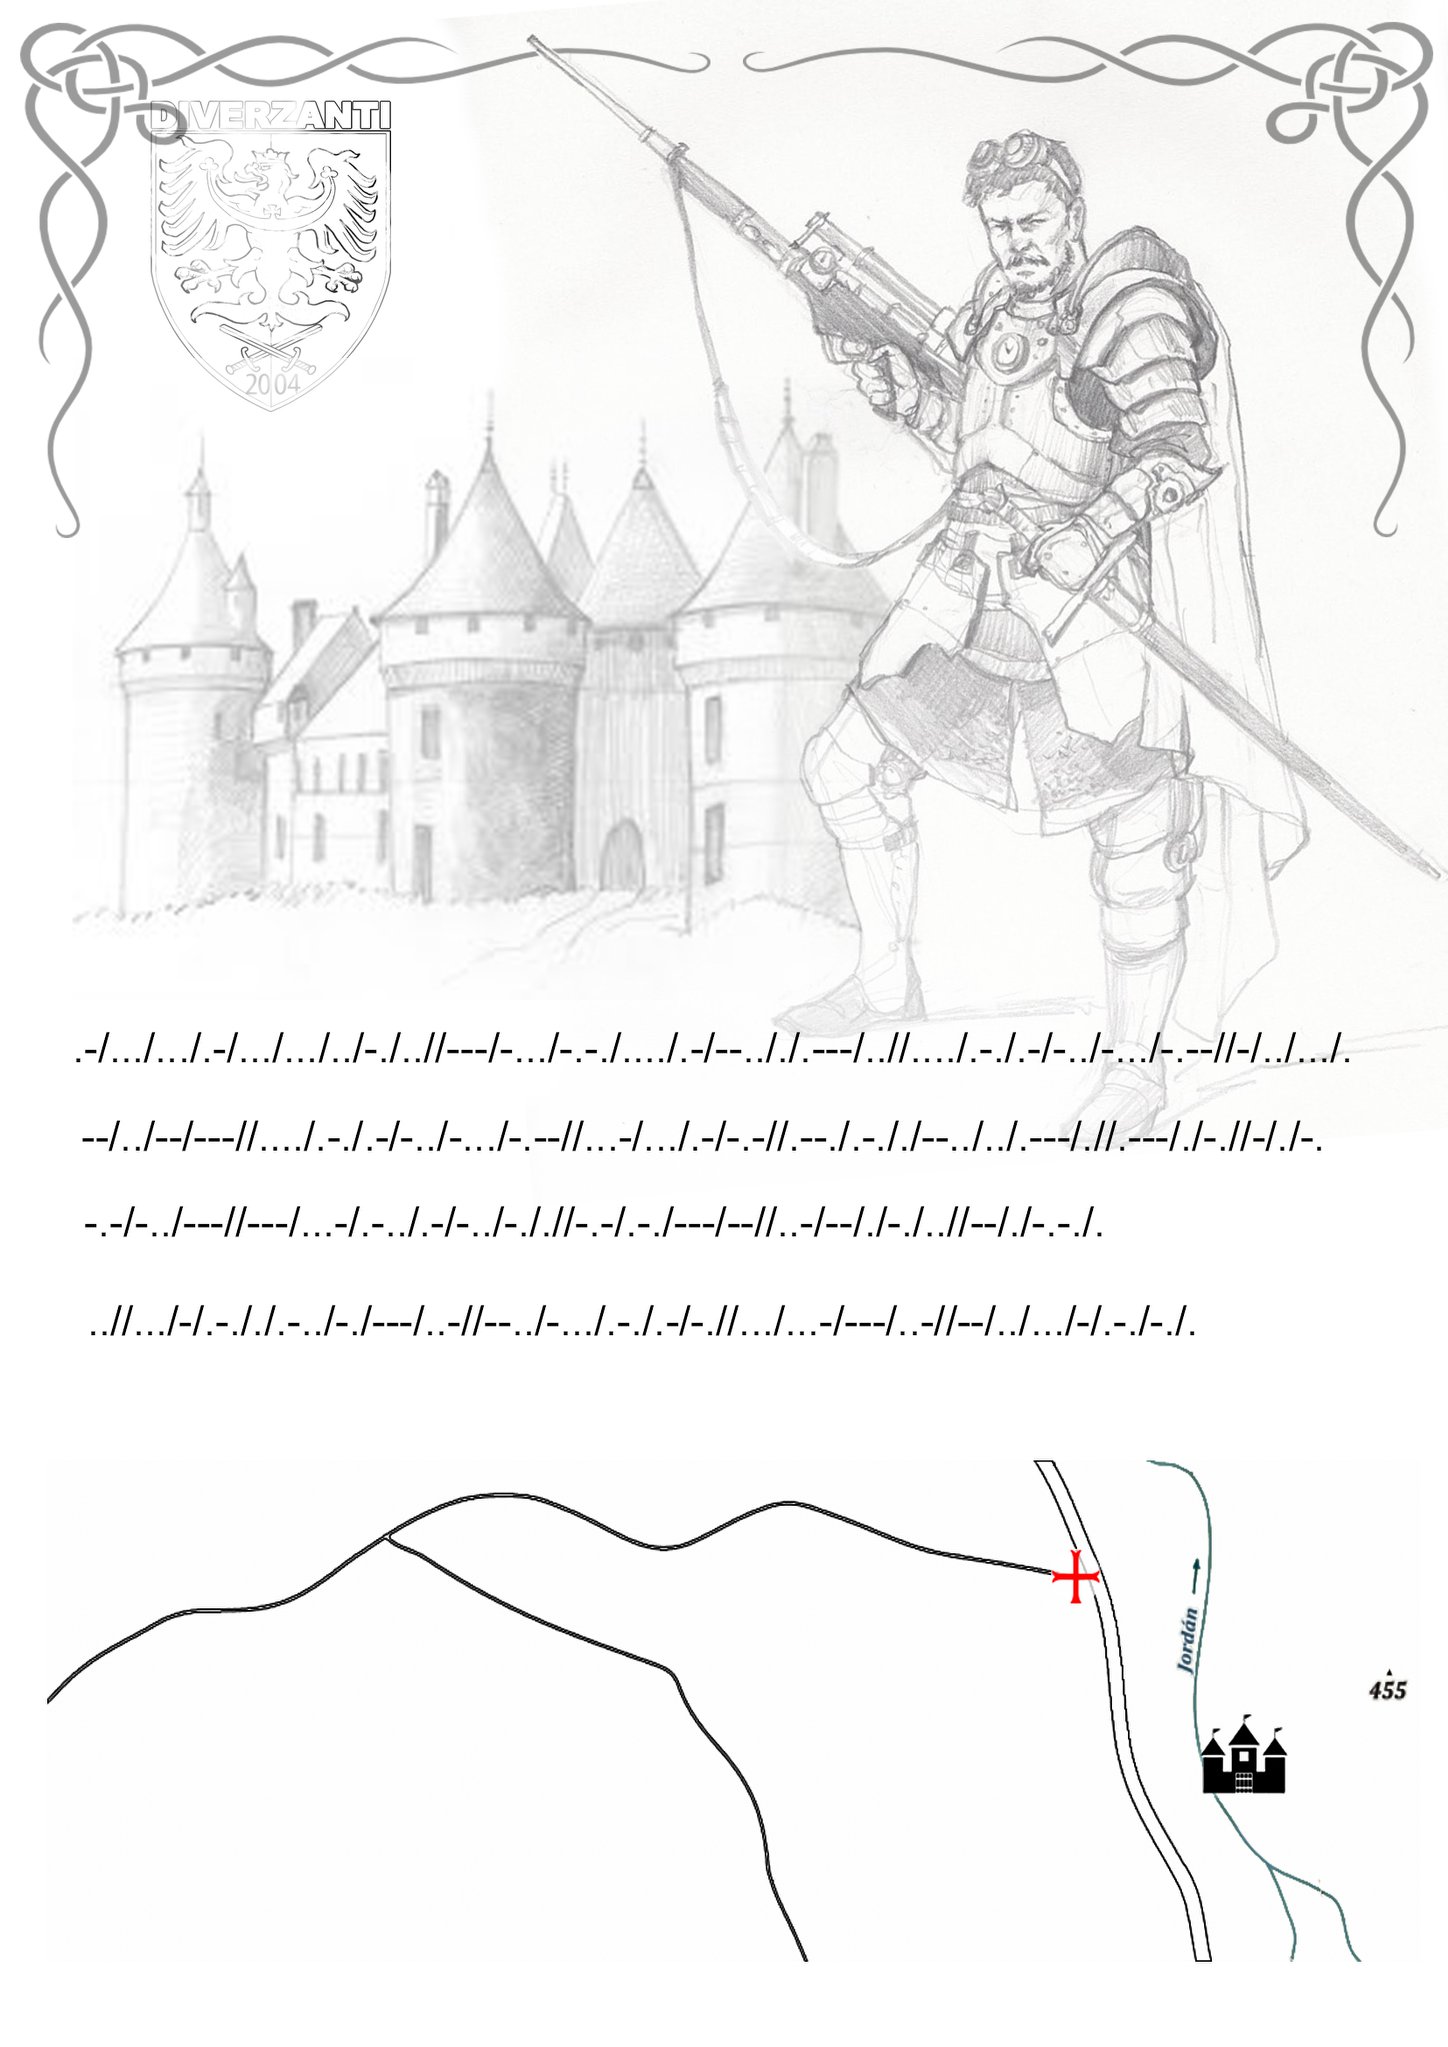 DIVERZANTI
2004
.-/.../.../.-/.../.../../-./..//---/-.../-.-./..../.-/--.././.---/..//..../.-./.-/-../-.../-.--//-/../.../.
--/../--/---//..../.-./.-/-../-.../-.--//...-/.../.-/-.-//.--./.-././--../../.---/.//.---/./-.//-/./-.
-.-/-../---//---/...-/.-../.-/-../-././/-.-/.-./---/--//..-/--/./-./..//--/./-.-./.
..//.../-/.-././.-../-./---/..-//--../-.../.-./.-/-.//.../...-/---/..-//--/../.../-/.-./-./.
Jordán
455